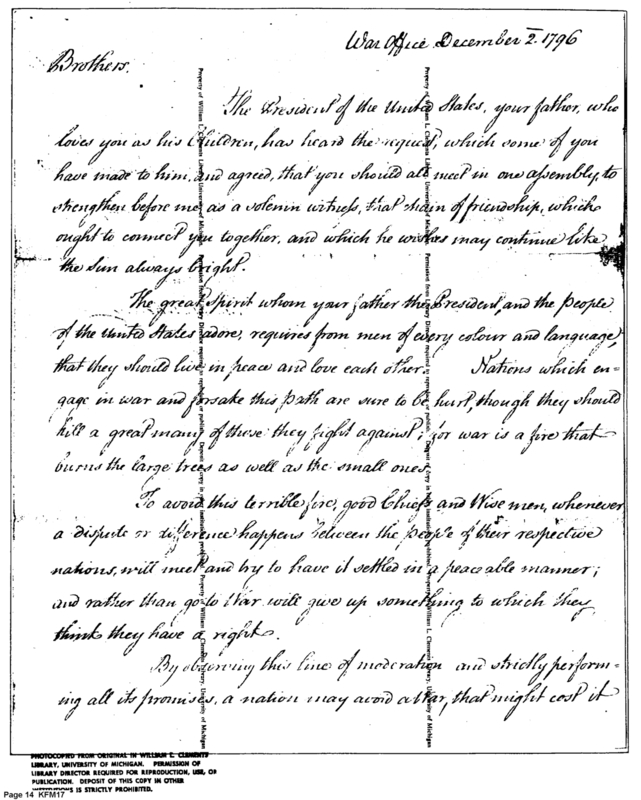 War Office December 2. 1796
Brothers.
The President of the United States, your father, who
loves you as his Children, has heard the request, which some of you
have made to him, and agreed, that you should all meet in one assembly, to
strengthen before me as a solemn witness, that chain of friendship, which
ought to connect you together, and which he wishes may continue like
the sun always bright.
The great spirit whom your father the President, and the people
of the United States adore, requires from men of every colour and language,
that they should live in peace and love each other. Nations which en-
gage in war and forsake this path are sure to be hurt, though they should
kill a great many of those they fight against; for war is a fire that
burns the large trees as well as the small ones.
To avoid this terrible fire, good Chiefs and Wise men, whenever
a dispute or difference happens between the people of their respective
nations, will meet and try to have it settled in a peaceable manner;
and rather than go to War will give up something to which they
think they have a right.
By observing this line of moderation and strictly perform-
ing all its promises, a nation may avoid a War, that might cost it
PHOTOCOPIED FROM ORIGINAL IN WILLIAM L. CLEMENTS
LIBRARY, UNIVERSITY OF MICHIGAN. PERMISSION OF
LIBRARY DIRECTOR REQUIRED FOR REPRODUCTION, USE, OR
PUBLICATION. DEPOSIT OF THIS COPY IN OTHER
INSTITUTIONS IS STRICTLY PROHIBITED.
Page 14 KFM17